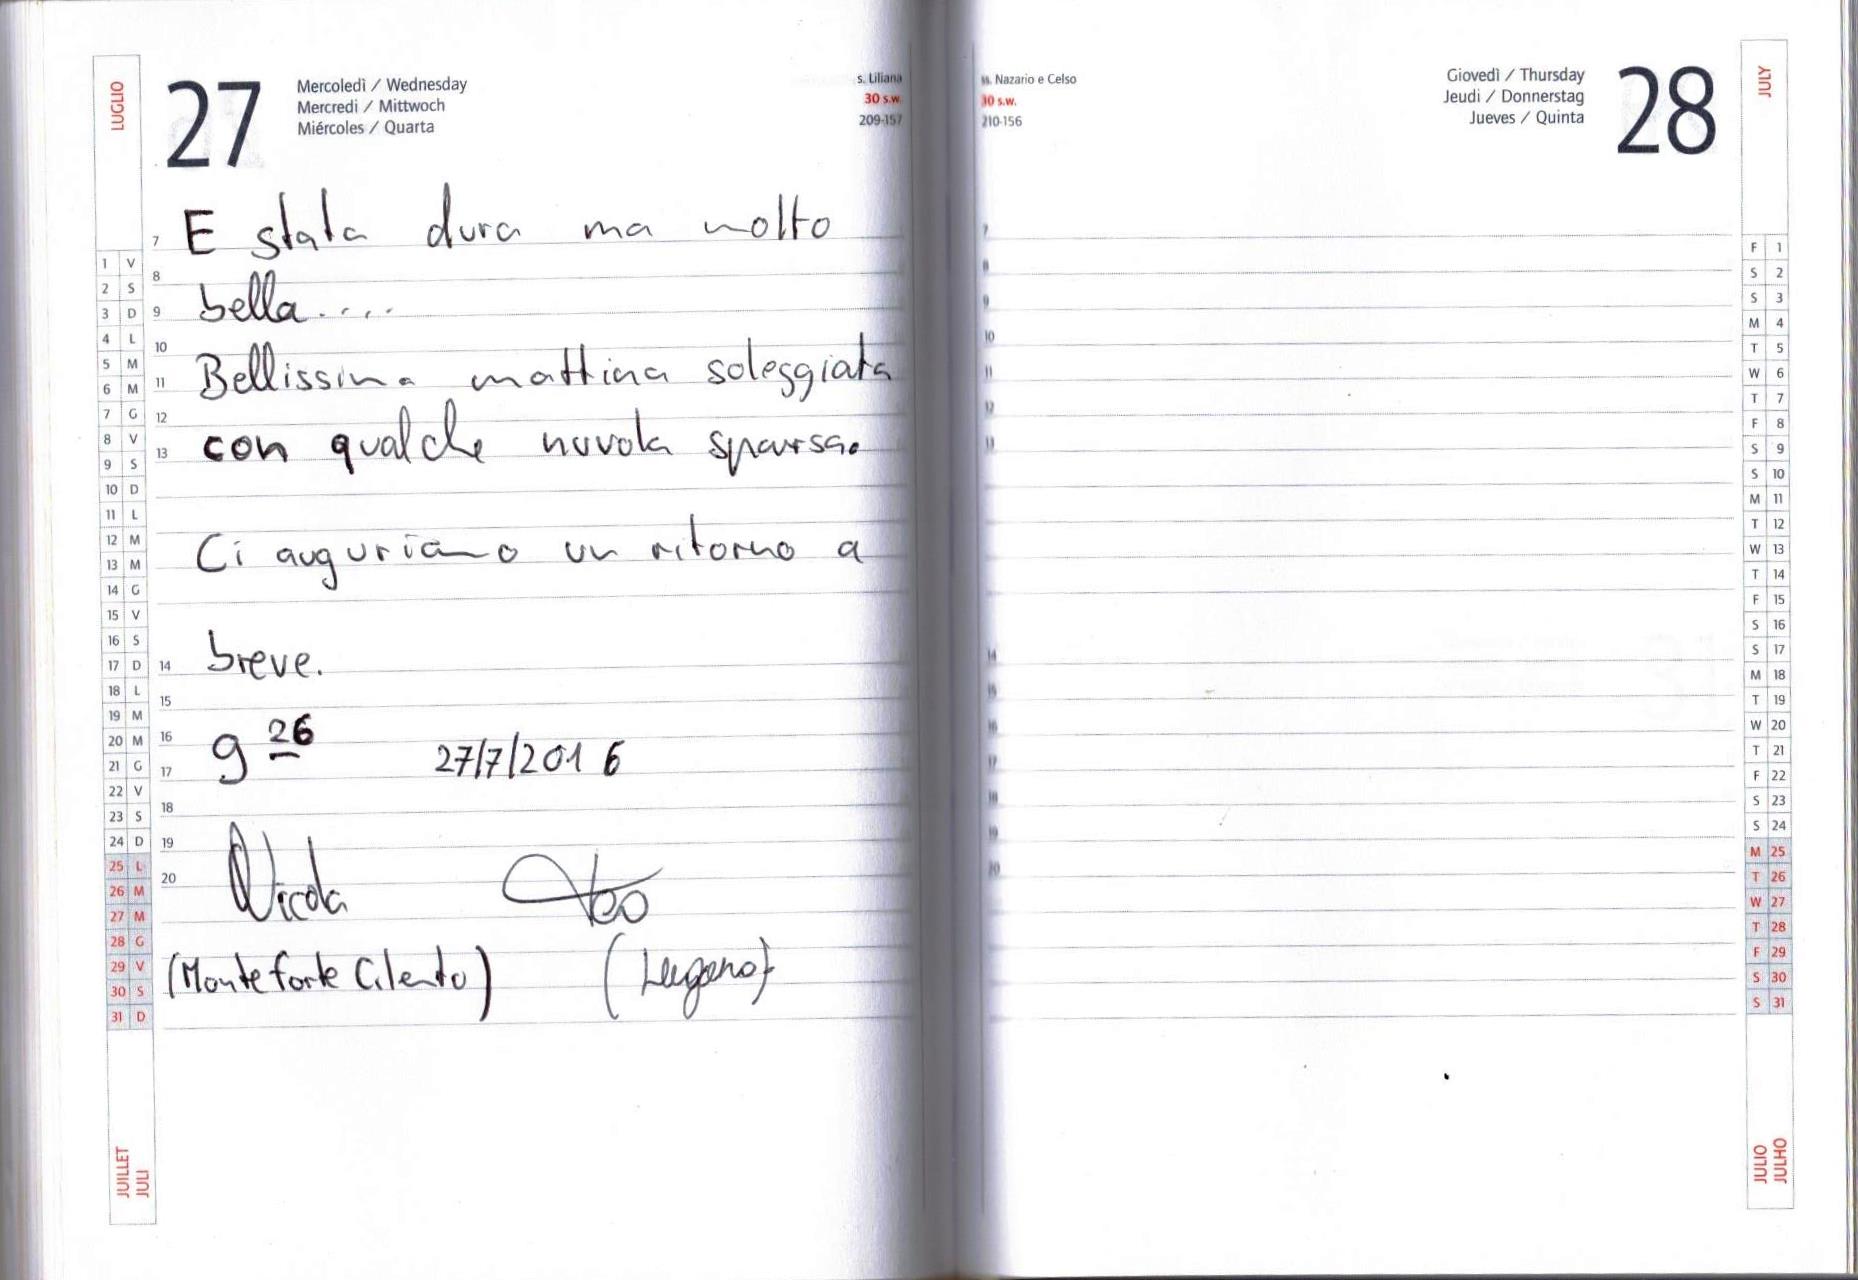 LUGLIO
27
Mercoledì / Wednesday
Mercredi / Mittwoch
Miércoles / Quarta
s. Liliana
30 s.w.
209-157
E stata dura ma molto
bella.....
Bellissima mattina soleggiata
con qualche nuvola sparsa.
Ci auguriamo un ritorno a
breve.
9 26 27/7/2016
Nicola Teo
(Monteforte Cilento) (Lugano)
7
8
9
10
11
12
13
14
15
16
17
18
19
20
1 V
2 S
3 D
4 L
5 M
6 M
7 G
8 V
9 S
10 D
11 L
12 M
13 M
14 G
15 V
16 S
17 D
18 L
19 M
20 M
21 G
22 V
23 S
24 D
25 L
26 M
27 M
28 G
29 V
30 S
31 D
JUILLET
JULI
ss. Nazario e Celso
30 s.w.
210-156
Giovedì / Thursday
Jeudi / Donnerstag
Jueves / Quinta
28
JULY
7
8
9
10
11
12
13
14
15
16
17
18
19
20
F 1
S 2
S 3
M 4
T 5
W 6
T 7
F 8
S 9
S 10
M 11
T 12
W 13
T 14
F 15
S 16
S 17
M 18
T 19
W 20
T 21
F 22
S 23
S 24
M 25
T 26
W 27
T 28
F 29
S 30
S 31
JULIO
JULHO